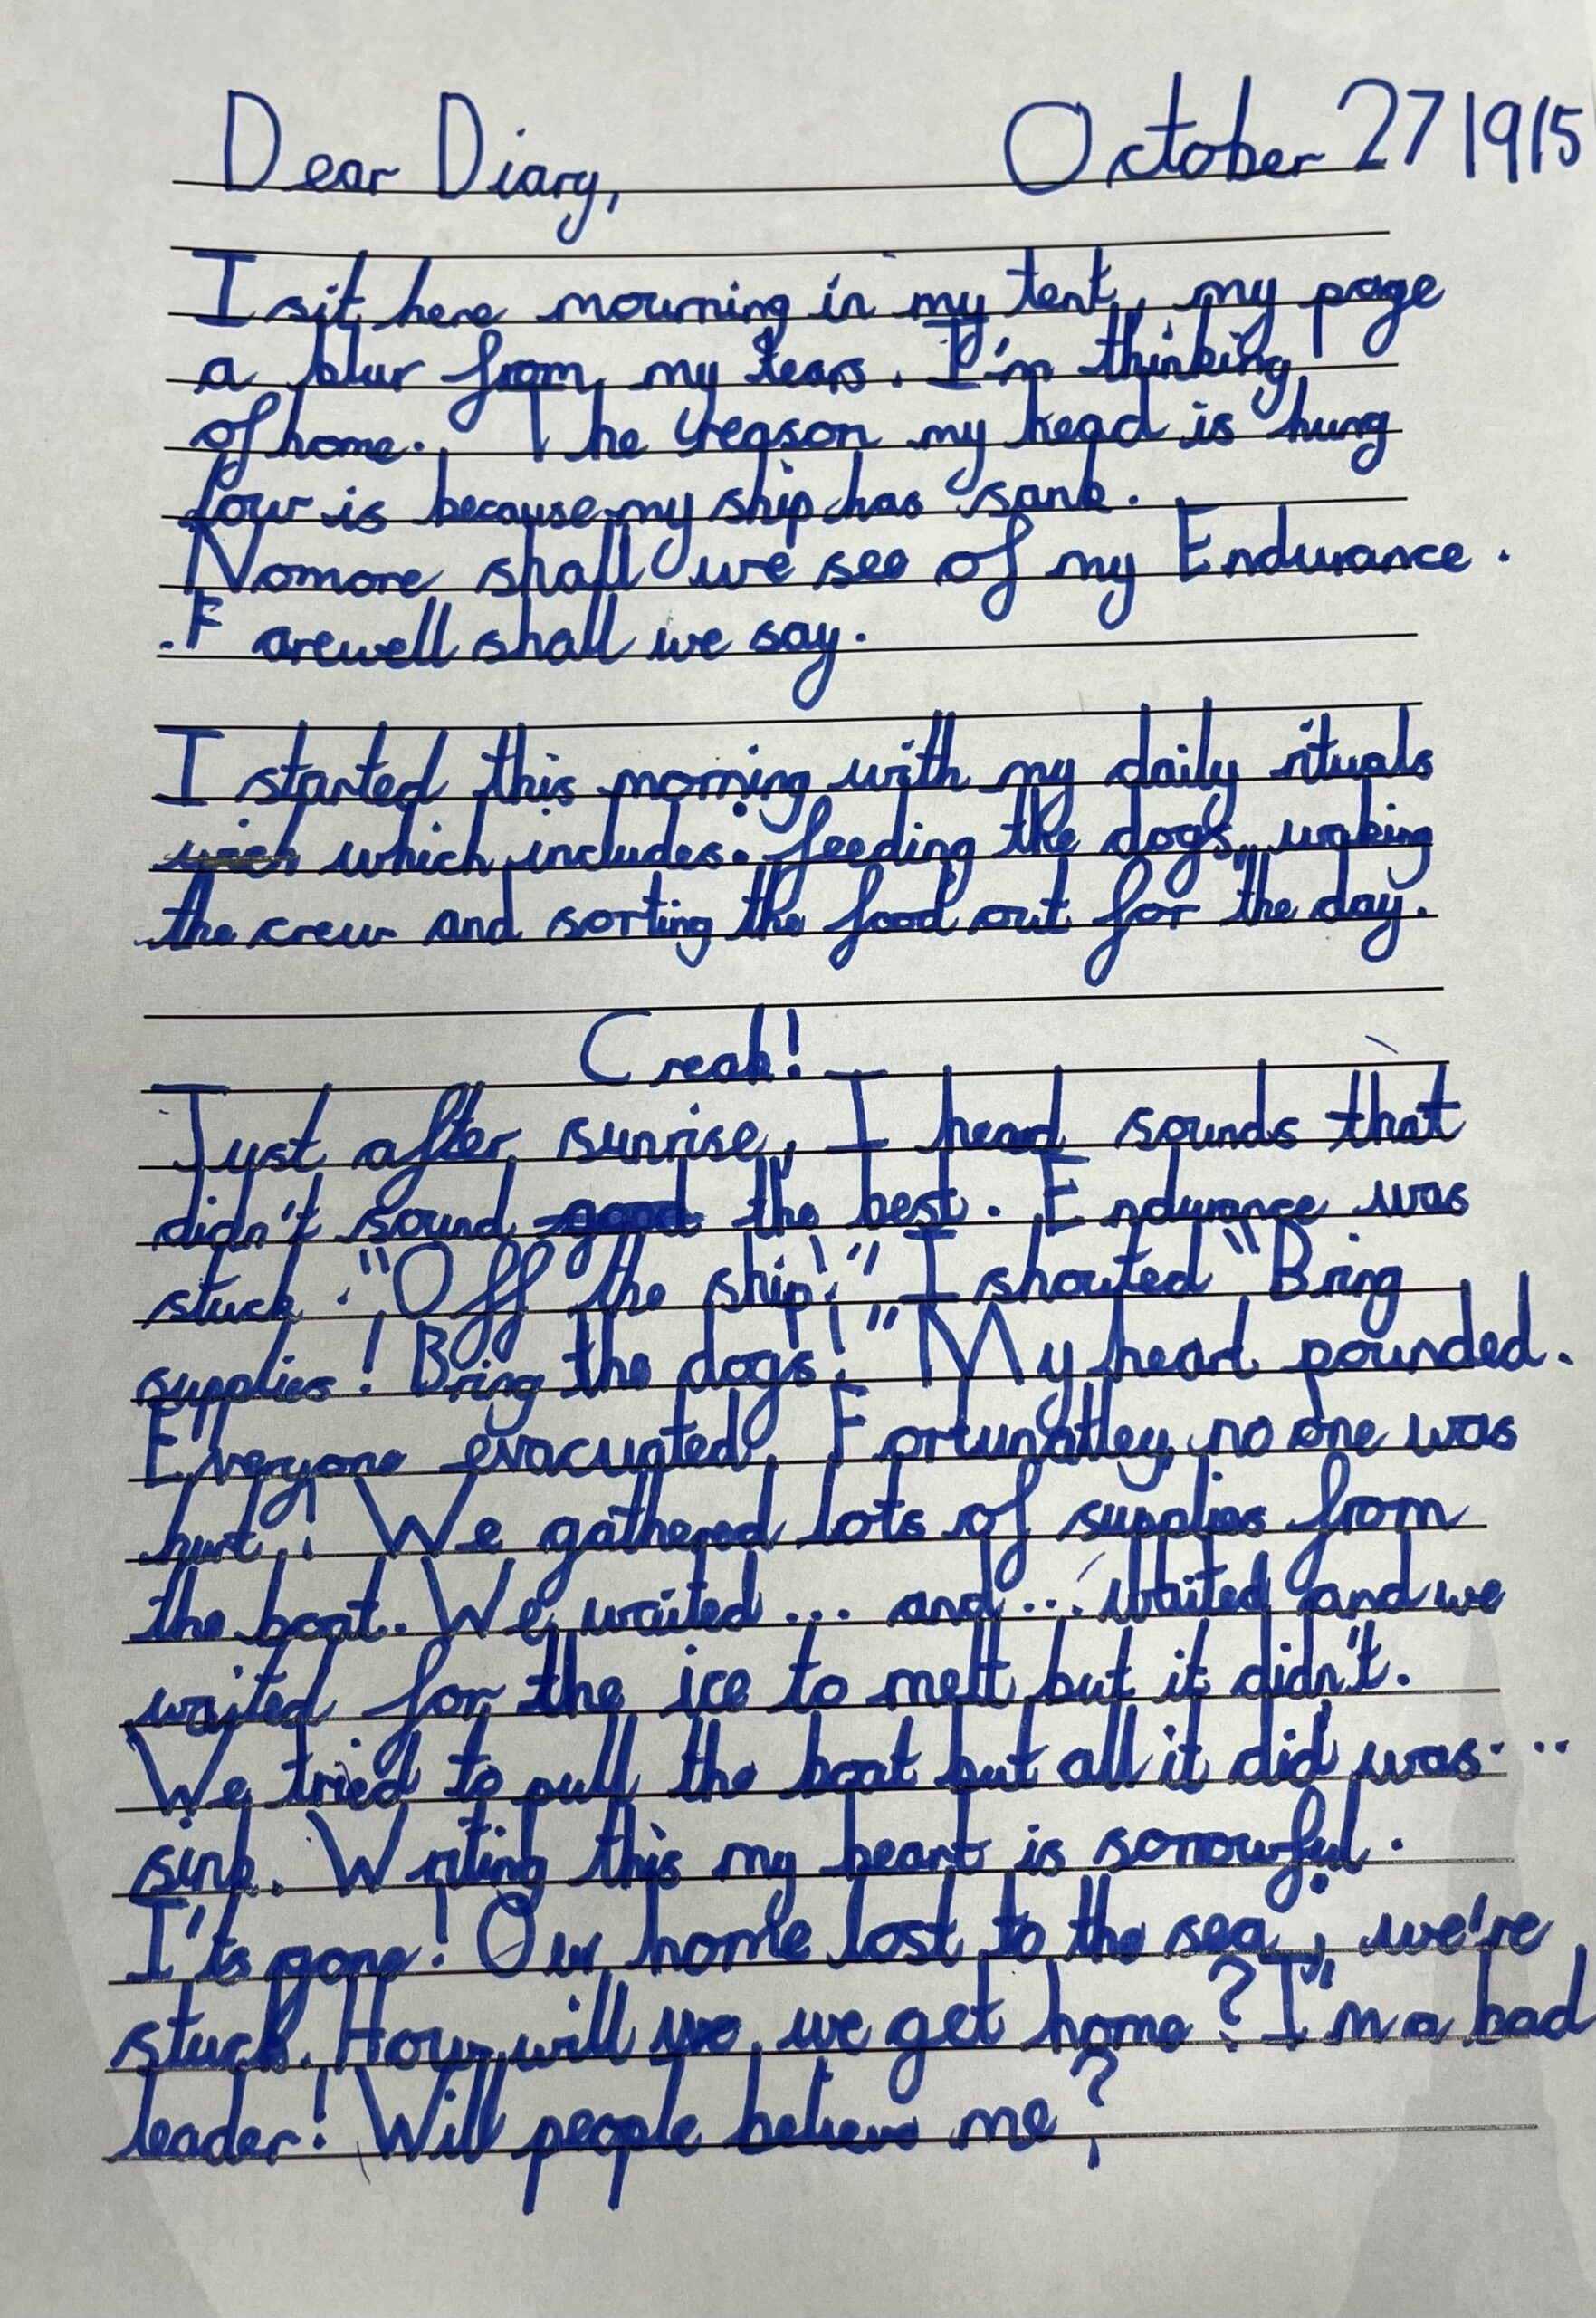 Dear Diary, October 27 1915
I sit here mourning in my tent, my page
a blur from my tears. I'm thinking
of home. The reason my head is hung
low is because my ship has sank.
Nomore shall we see of my Endurance.
Farewell shall we say.
I started this morning with my daily rituals
wich which includes: feeding the dogs, waking
the crew and sorting the food out for the day.
Creak!
Just after sunrise, I heard sounds that
didn't sound good the best. Endurance was
stuck. "Off the ship!" I shouted "Bring
supplies! Bring the dogs!" My heart pounded.
Everyone evacuated. Fortunatley, no one was
hurt! We gathered lots of supplies from
the boat. We waited... and... waited and we
waited for the ice to melt but it didn't.
We tried to pull the boat but all it did was...
sink. Writing this my heart is sorrowful.
I'ts gone! Our home lost to the sea; we're
stuck. How will we we get home? I'm a bad
leader! Will people believe me?